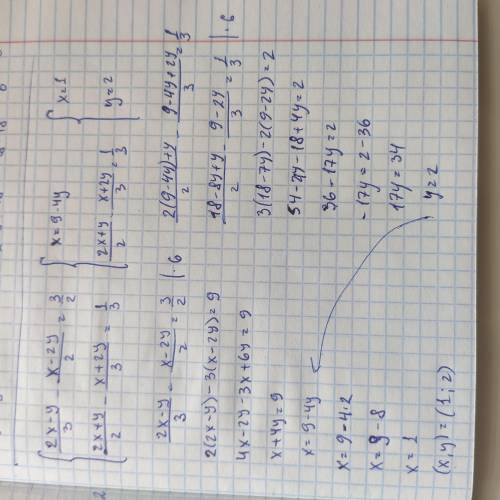 { (2x-y)/3 - (x-2y)/2 = 3/2
{ (2x+y)/2 - (x+2y)/3 = 1/3
{ x=9-4y
{ (2x+y)/2 - (x+2y)/3 = 1/3
{ x=1
{ y=2
(2x-y)/3 - (x-2y)/2 = 3/2 |·6
2(2x-y)-3(x-2y)=9
4x-2y-3x+6y=9
x+4y=9
x=9-4y
x=9-4·2
x=9-8
x=1
(x,y)=(1;2)
(2(9-4y)+y)/2 - (9-4y+2y)/3 = 1/3
(18-8y+y)/2 - (9-2y)/3 = 1/3 |·6
3(18-7y)-2(9-2y)=2
54-21y-18+4y=2
36-17y=2
-17y=2-36
17y=34
y=2